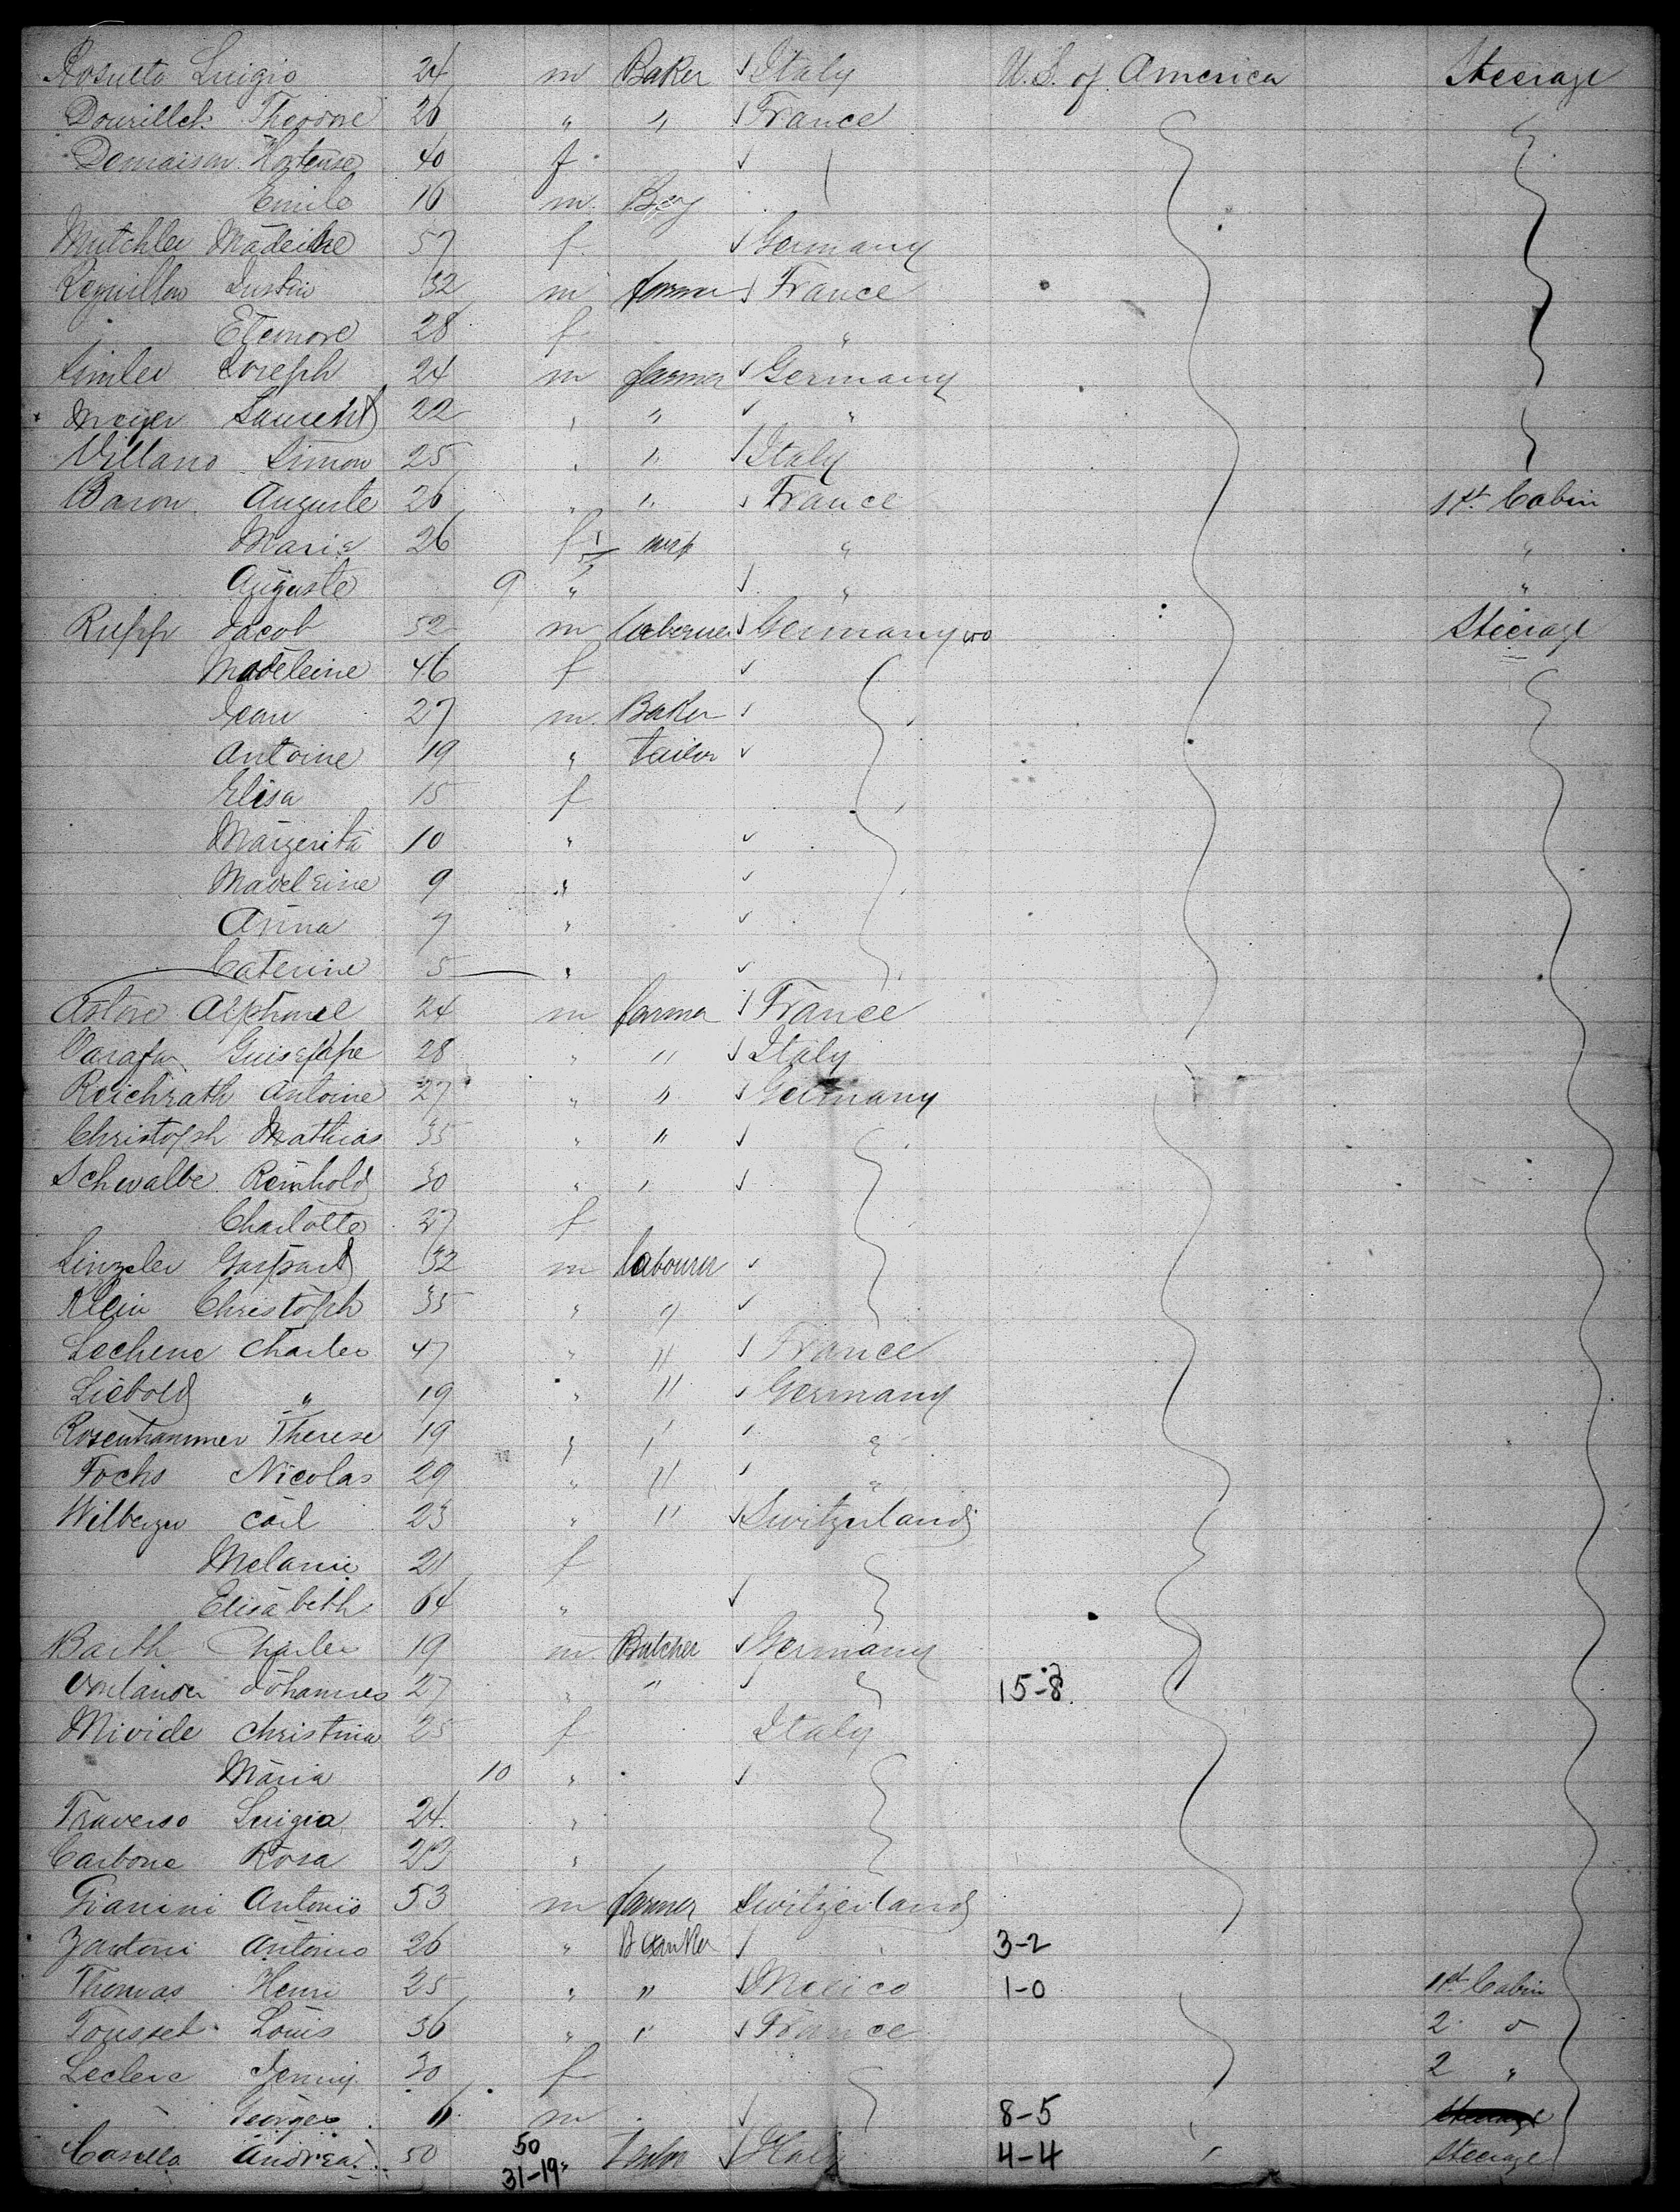 Rosueto Luigio 24 m Baker √ Italy U.S. of America Steerage
Dourillet Theodore 26 " " √ France
Demaison Hortense 40 f √
Emile 16 m Boy
Mutchler Madeline 57 f √ Germany
Requillon Justin 32 m farmer √ France
Elemore 28 f "
Simler Joseph 24 m farmer √ Germany
Meyer Laurent 22 " " √ "
Villano Simon 25 " " √ Italy
Baron Auguste 26 " " √ France 1st Cabin
Marie 26 f wife " "
Auguste 9 " √ " "
Rupp Jacob 52 m labourer √ Germany Steerage
Madeleine 46 f √
Jean 27 m Baker √
Antoine 19 " tailor √
Elisa 15 f
Margerita 10 " √
Madeleine 9 " √
Anna 7 " √
Caterine 5 " √
Astore Alphonse 24 m farmer √ France
Guiseppe 28 " " √ Italy
Reichrath Antoine 27 " " √ Germany
Christoph Mathias 35 " " √
Schevalbe Reinhold 30 " " √
Charlotte 27 f
Linzeler Gaspard 32 m labourer √
Klein Christoph 35 " " √
Lechene Charles 47 " " √ France
Liebold " 19 " " √ Germany
Rosenhammer Therese 19 " " √ "
Fochs Nicolas 29 " " √ "
Wilberger Carl 23 " " √ Switzerland
Melanie 21 f
Elisabeth 64 " √
Barth Charles 19 m Butcher √ Germany
Johannes 27 " " √ 15-8
Mivide Christina 25 f Italy
Maria 10 " √
Traverso Luigia 24 "
Carbone Rosa 23 "
Gianini Antonio 53 m farmer Switzerland
Zantoni Antonio 26 " Banker √ " 3-2
Thomas Henri 25 " " √ Mexico 1-0 1st Cabin
Tousset Louis 36 " " √ France 2 "
Leclerc Jenny 30 f 2 "
Georges 6 m √ 8-5
Casella Andrea 50 50 √ Italy 4-4 " Steerage
31-19